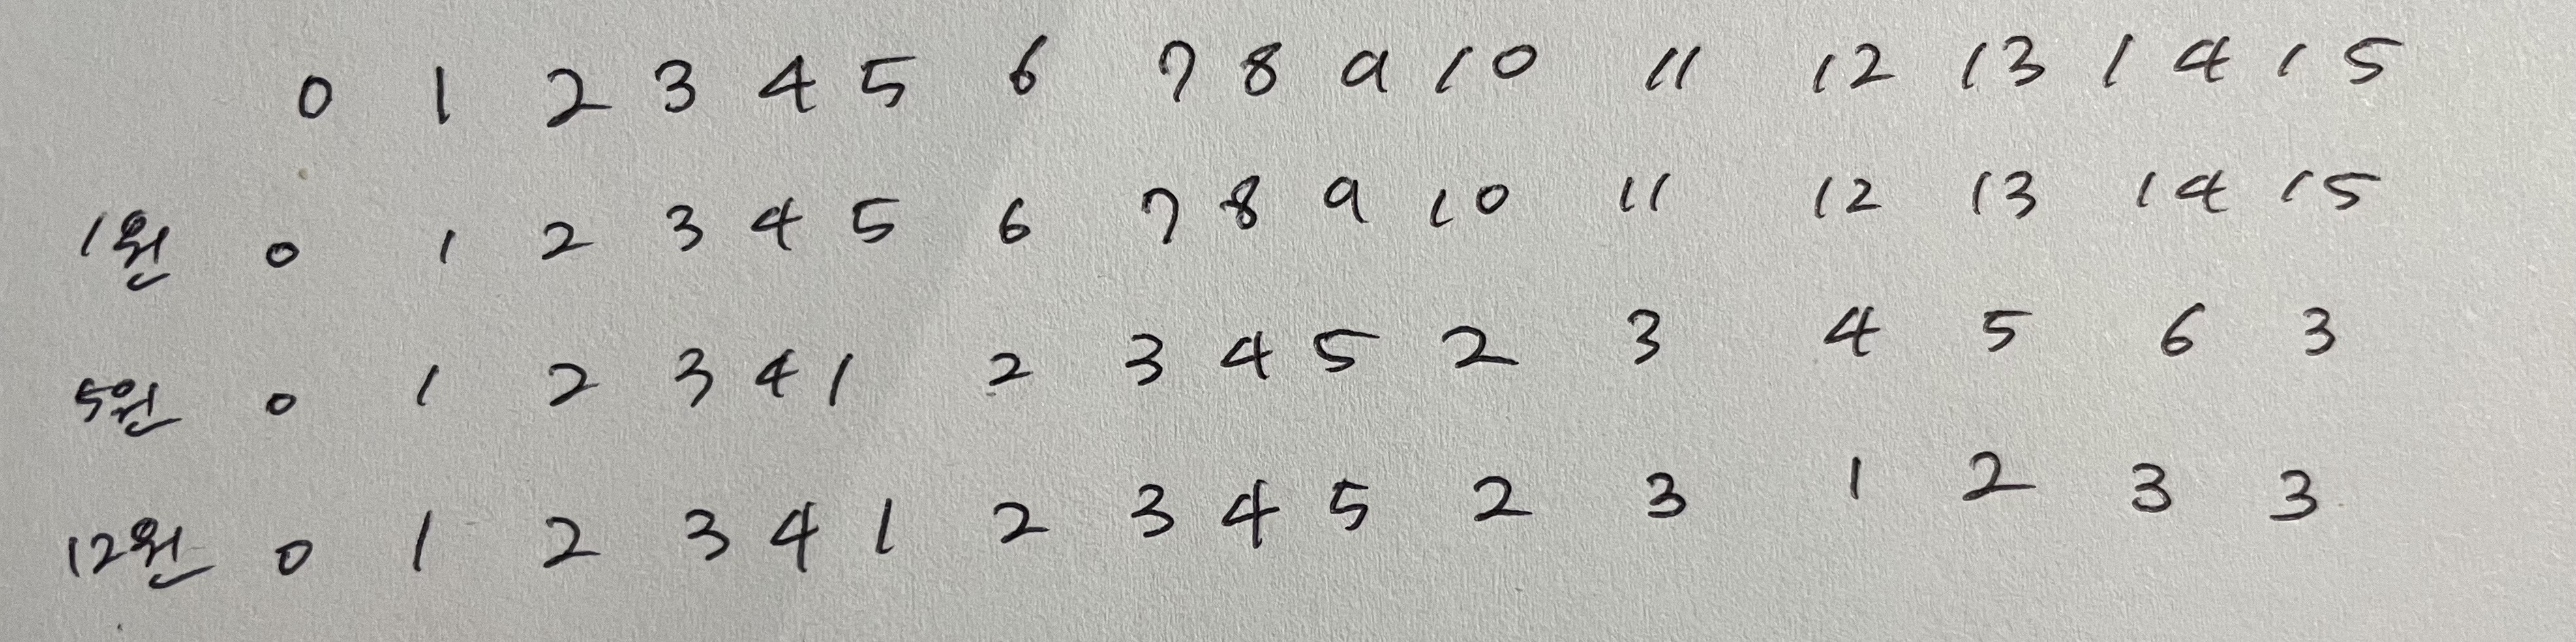 0 1 2 3 4 5 6 7 8 9 10 11 12 13 14 15
1원 0 1 2 3 4 5 6 7 8 9 10 11 12 13 14 15
5원 0 1 2 3 4 1 2 3 4 5 2 3 4 5 6 3
12원 0 1 2 3 4 1 2 3 4 5 2 3 1 2 3 3